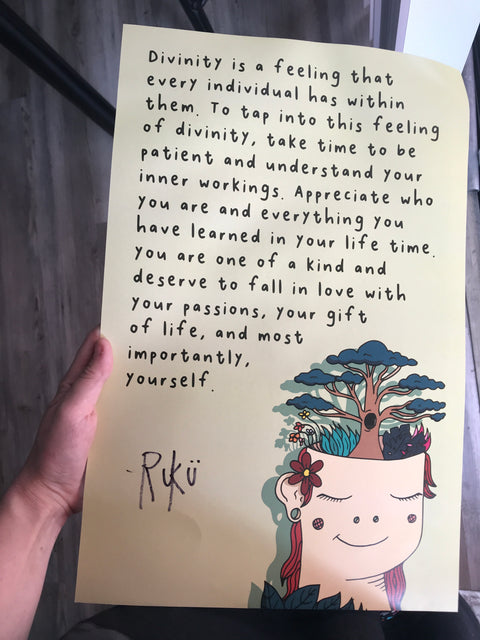 Divinity is a feeling that
every individual has within
them. To tap into this feeling
of divinity, take time to be
patient and understand your
inner workings. Appreciate who
you are and everything you
have learned in your life time.
you are one of a kind and
deserve to fall in love with
your passions, your gift
of life, and most
importantly,
yourself.
-Rukü